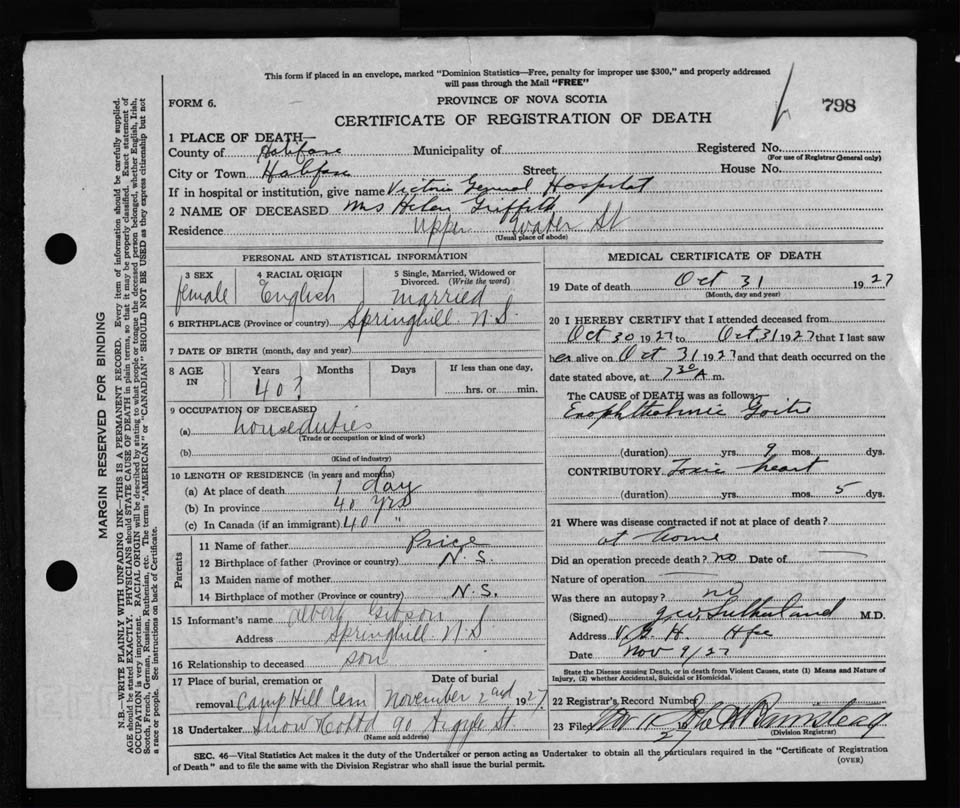 This form if placed in an envelope, marked "Dominion Statistics—Free, penalty for improper use $300," and properly addressed
will pass through the Mail "FREE"
FORM 6.
PROVINCE OF NOVA SCOTIA
798
CERTIFICATE OF REGISTRATION OF DEATH
1 PLACE OF DEATH—
County of Halifax Municipality of Registered No.
(For use of Registrar General only)
City or Town Halifax Street House No.
If in hospital or institution, give name Victoria General Hospital
2 NAME OF DECEASED Mrs Helen Griffith
Residence Upper Water St
(Usual place of abode)
PERSONAL AND STATISTICAL INFORMATION
3 SEX 4 RACIAL ORIGIN 5 Single, Married, Widowed or Divorced. (Write the word)
female English married
6 BIRTHPLACE (Province or country) Springhill N.S.
7 DATE OF BIRTH (month, day and year)
8 AGE IN Years Months Days If less than one day,
40? hrs. or min.
9 OCCUPATION OF DECEASED
(a) houseduties
(Trade or occupation or kind of work)
(b)
(Kind of industry)
10 LENGTH OF RESIDENCE (in years and months)
(a) At place of death 1 day
(b) In province 40 yrs
(c) In Canada (if an immigrant) 40 "
Parents
11 Name of father Price
12 Birthplace of father (Province or country) N.S.
13 Maiden name of mother
14 Birthplace of mother (Province or country) N.S.
15 Informant's name Albert Gibson
Address Springhill N.S.
16 Relationship to deceased son
17 Place of burial, cremation or removal Date of burial
Camp Hill Cem November 2nd 1927
18 Undertaker Snow & Co Ltd 90 Argyle St.
(Name and address)
MEDICAL CERTIFICATE OF DEATH
19 Date of death Oct 31 1927
(Month, day and year)
20 I HEREBY CERTIFY that I attended deceased from
Oct 30 1927 to Oct 31 1927 that I last saw
her alive on Oct 31 1927 and that death occurred on
date stated above, at 7 30 A m.
The CAUSE of DEATH was as follows:
Exophthalmic Goitre
(duration) yrs. 9 mos. dys.
CONTRIBUTORY Toxic heart
(duration) yrs. mos. 5 dys.
21 Where was disease contracted if not at place of death?
at home
Did an operation precede death? no Date of
Nature of operation
Was there an autopsy? no
(Signed) G W Sutherland M.D.
Address V. G. H. Hfx
Date Nov 9/27
State the Disease causing Death, or in death from Violent Causes, state (1) Means and Nature of
Injury, (2) whether Accidental, Suicidal or Homicidal.
22 Registrar's Record Number
23 Filed Nov
(Division Registrar)
SEC. 46—Vital Statistics Act makes it the duty of the Undertaker or person acting as Undertaker to obtain all the particulars required in the "Certificate of Registration
of Death" and to file the same with the Division Registrar who shall issue the burial permit.
(OVER)
MARGIN RESERVED FOR BINDING
N.B.—WRITE PLAINLY WITH UNFADING INK—THIS IS A PERMANENT RECORD. Every item of information should be carefully supplied.
AGE should be stated EXACTLY. PHYSICIANS should STATE CAUSE OF DEATH in plain terms, so that it may be properly classified. Exact statement of
OCCUPATION is very important. RACIAL ORIGIN will be described by stating to what people or tongue the deceased person belonged, whether English, Irish,
Scotch, French, German, Russian, Ruthenian, etc. The terms "AMERICAN" or "CANADIAN" SHOULD NOT BE USED as they express citizenship but not
a race or people. See instructions on back of Certificate.